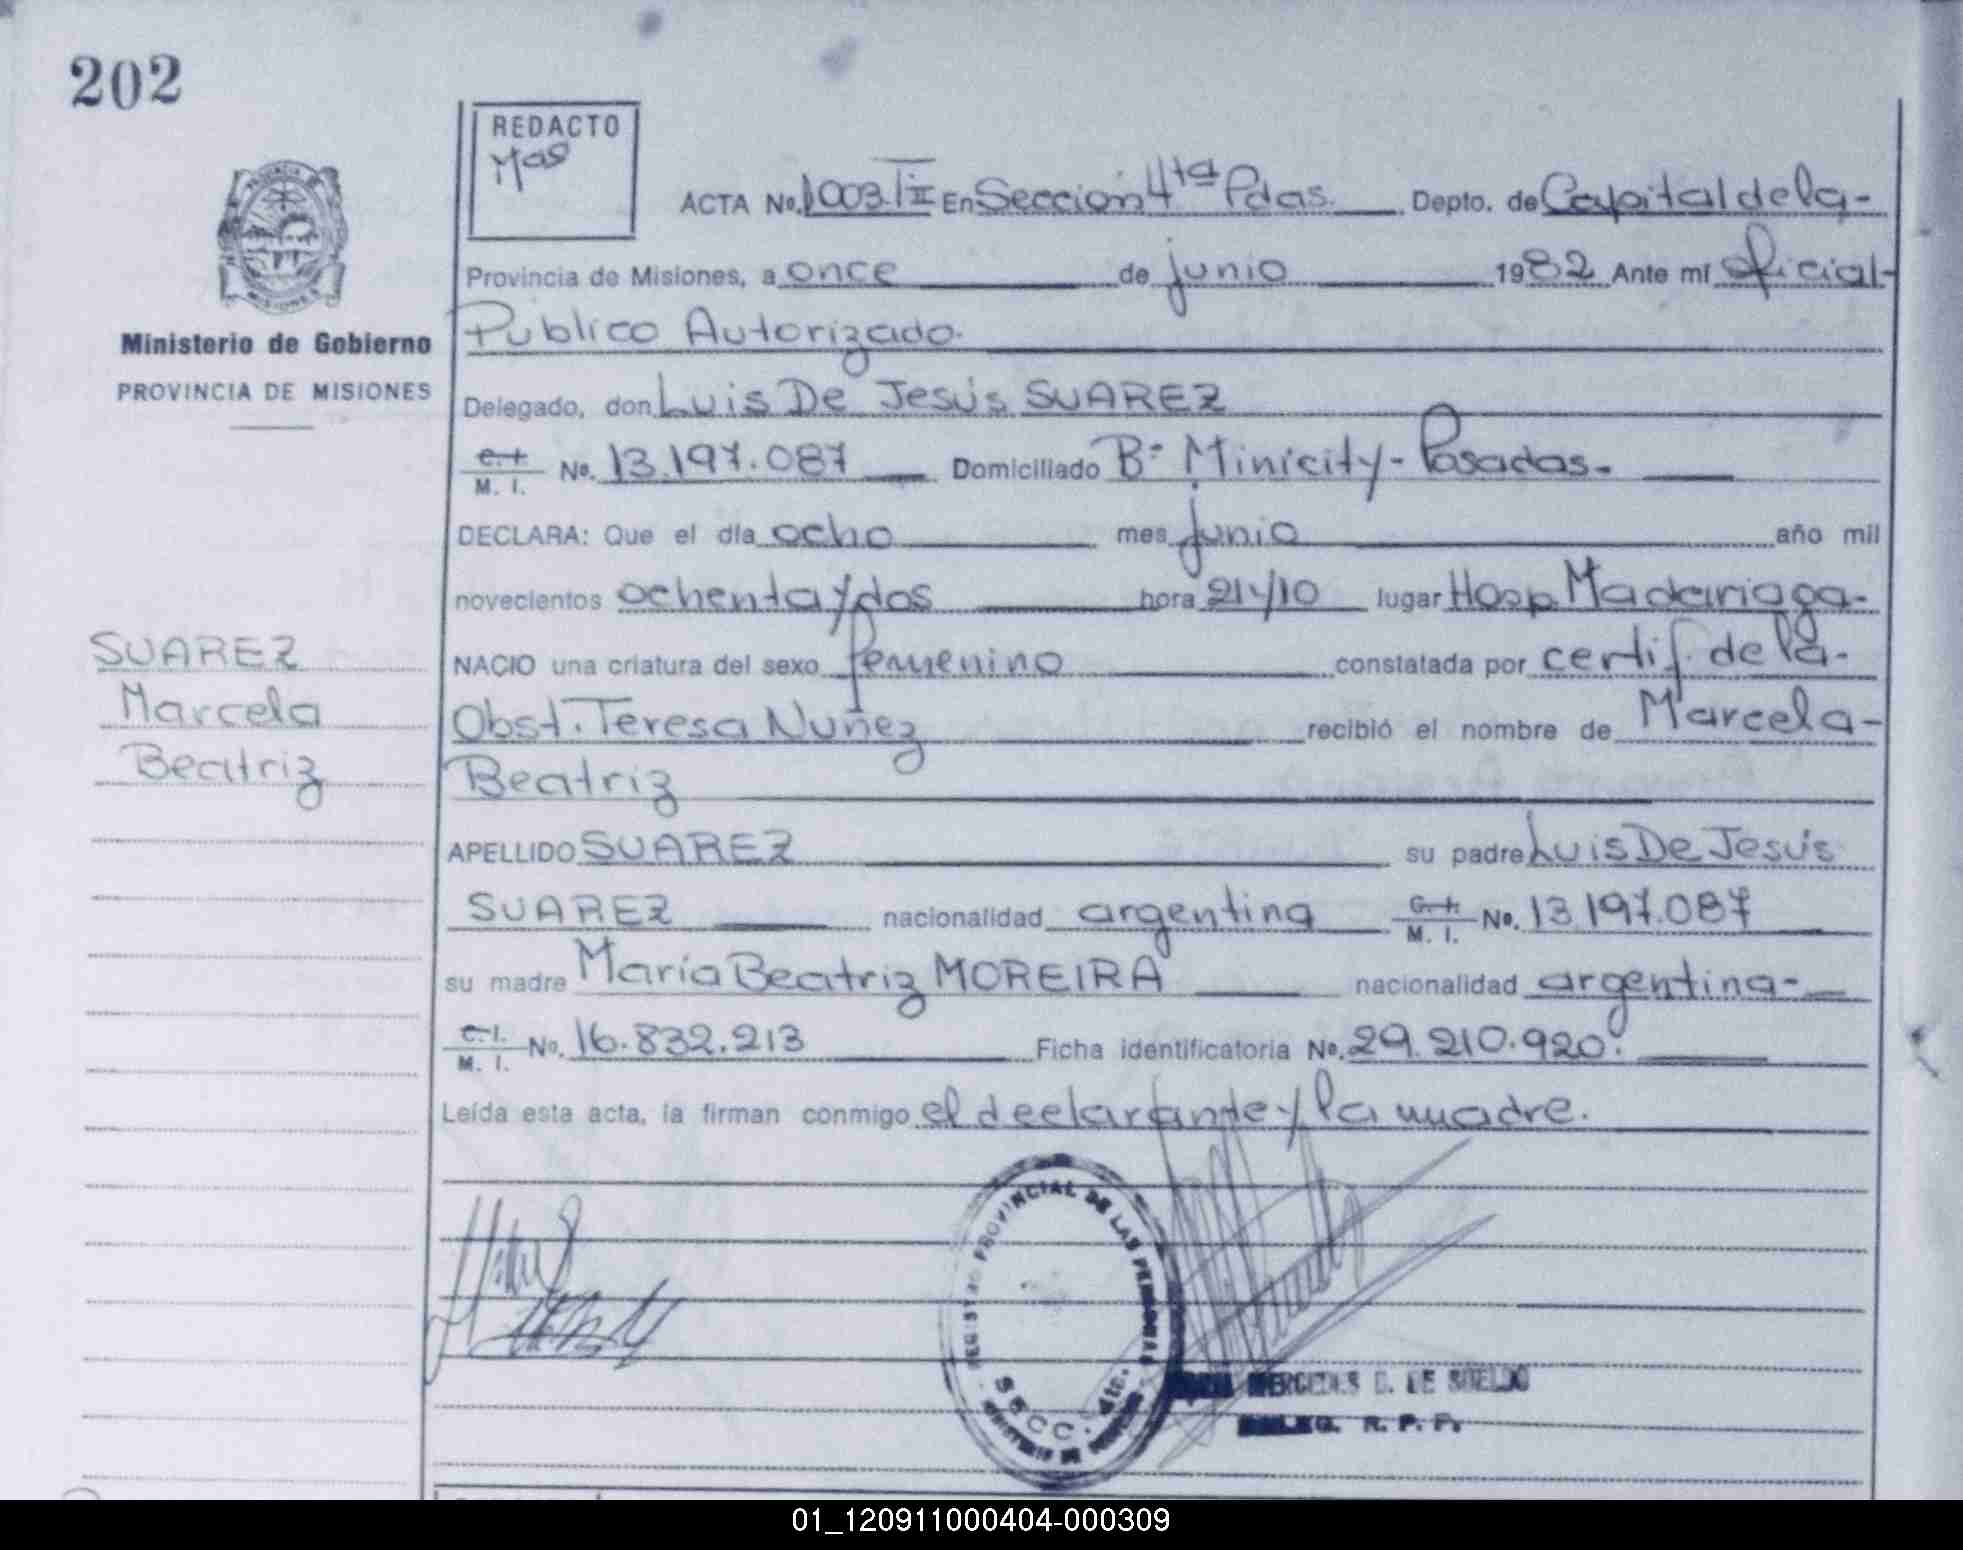 202
REDACTO
Mas
PROVINCIA DE
MISIONES
Ministerio de Gobierno
PROVINCIA DE MISIONES
ACTA No. 1003 T II En Sección 4ta Pdas. Depto. de Capital de la-
Provincia de Misiones, a once de junio 1982 Ante mí oficial-
Publico Autorizado.
Delegado, don Luis De Jesús SUAREZ
C. I. M. I. No. 13.197.087 Domiciliado Bº Minicity - Posadas.
DECLARA: Que el día ocho mes junio año mil
novecientos ochenta y dos hora 21y10 lugar Hosp. Madariaga-
NACIO una criatura del sexo femenino constatada por certif. de la-
Obst. Teresa Nuñez recibió el nombre de Marcela-
Beatriz
APELLIDO SUAREZ su padre Luis De Jesús
SUAREZ nacionalidad argentina C. I. M. I. No. 13.197.087
su madre María Beatriz MOREIRA nacionalidad argentina-
C. I. M. I. No. 16.832.213 Ficha identificatoria No. 29.210.920.
Leída esta acta, la firman conmigo el declarante y la madre.
SUAREZ
Marcela
Beatriz
REGISTRO PROVINCIAL DE LAS PERSONAS
SECC. 4ta.
MERCEDES D. DE SUELDO
DELEG. R. P. P.
01_120911000404-000309